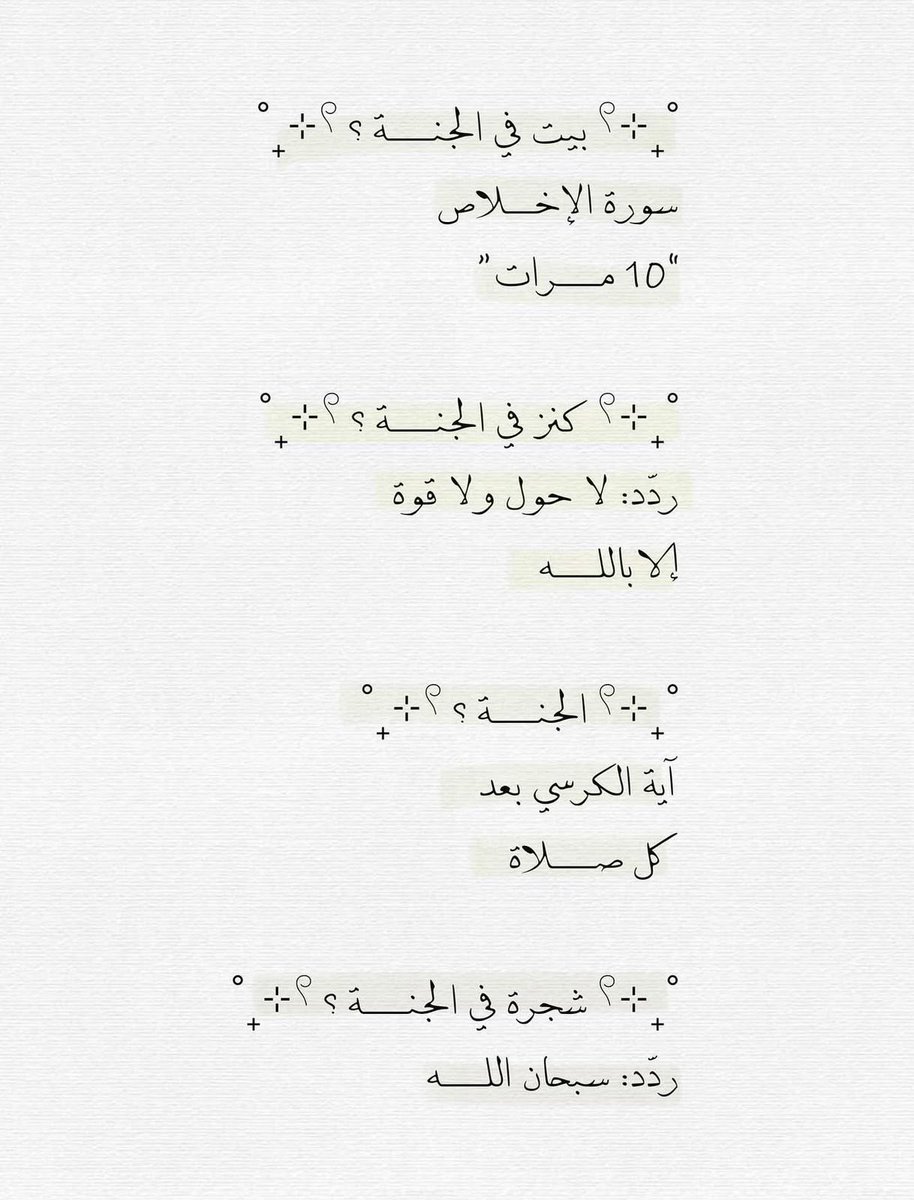 بيت في الجنـــة ؟
سورة الإخـــلاص
“10 مـــرات”
كنز في الجنـــة ؟
ردّد: لا حول ولا قوة
إلا باللـــه
الجنـــة ؟
آية الكرسي بعد
كل صـــلاة
شجرة في الجنـــة ؟
ردّد: سبحان اللـــه